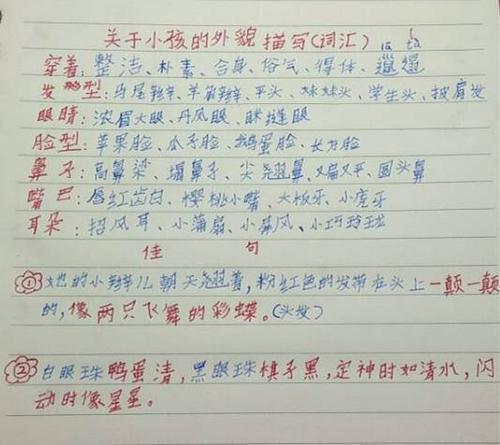 关于小孩的外貌描写(词汇)
穿着:整洁、朴素、合身、俗气、得体、邋遢
发型:马尾辫、羊角辫、平头、妹妹头、学生头、披肩发
眼睛:浓眉大眼、丹凤眼、眯缝眼
脸型:苹果脸、瓜子脸、鹅蛋脸、长方脸
鼻子:高鼻梁、塌鼻子、尖翘鼻、又扁又平、圆头鼻
嘴巴:唇红齿白、樱桃小嘴、大板牙、小虎牙
耳朵:招风耳、小蒲扇、小屏风、小巧玲珑
佳句
①她的小辫儿朝天翘着,粉红色的发带在头上一颠一颠
的,像两只飞舞的彩蝶。(头发)
②白眼珠鸭蛋清,黑眼珠棋子黑,定神时如清水,闪
动时像星星。